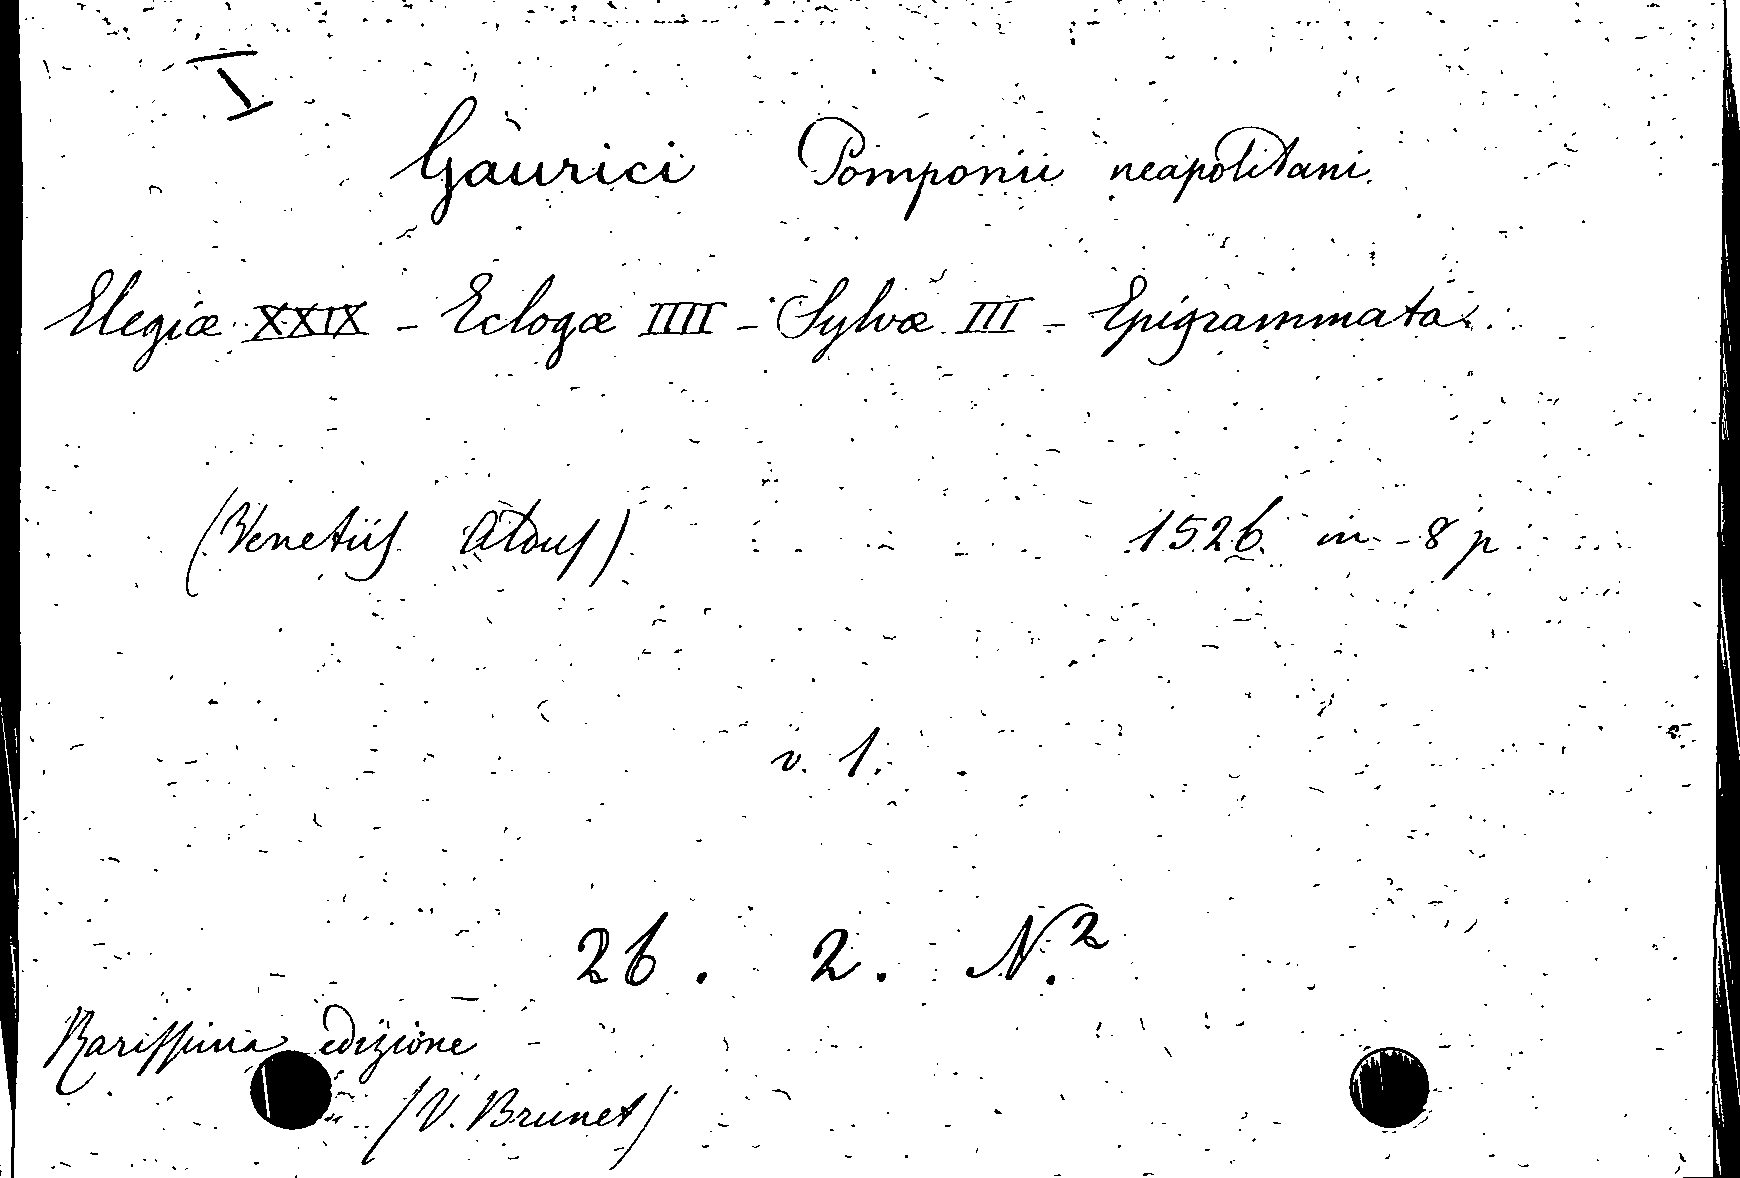 I
Gaurici Pomponii neapolitani.
Elegiæ XXIX - Eclogæ IIII - Sylvæ III - Epigrammata.
(Venetiis Aldus) 1526. in-8 p
v. 1.
26. 2. N.2
Rarissima edizione
(V. Brunet)